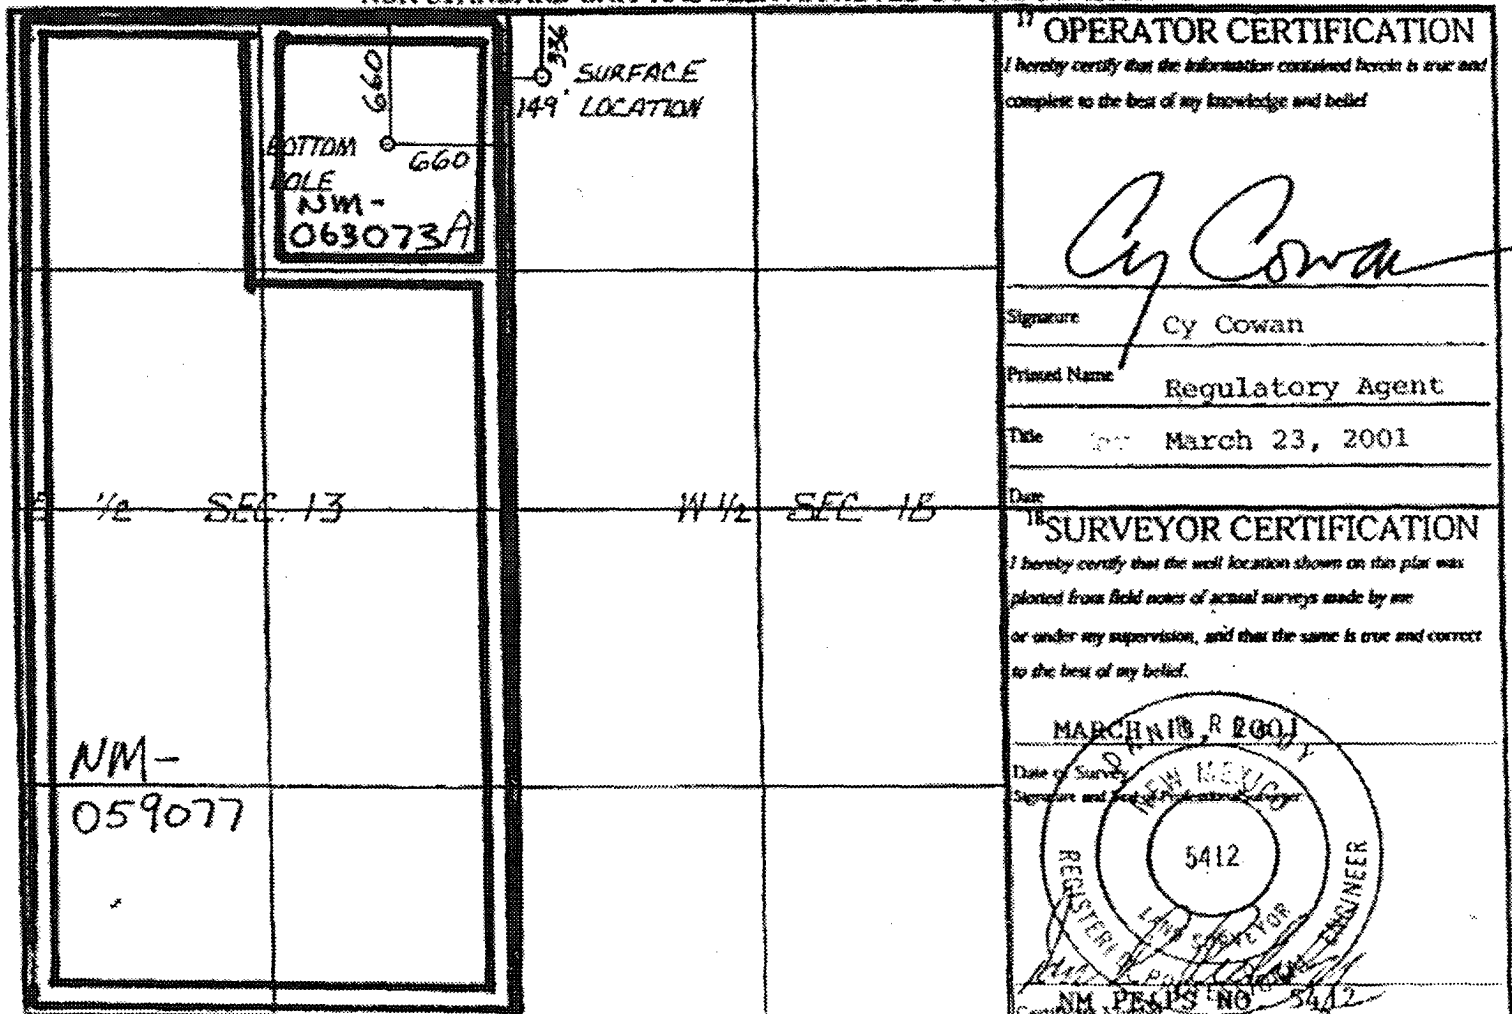 336
SURFACE
149' LOCATION
660
BOTTOM
HOLE
660
NM-
063073A
E 1/2 SEC. 13
W 1/2 SEC 18
NM-
059077
17 OPERATOR CERTIFICATION
I hereby certify that the information contained herein is true and
complete to the best of my knowledge and belief
Cy Cowan
Signature
Cy Cowan
Printed Name
Regulatory Agent
Title
March 23, 2001
Date
18 SURVEYOR CERTIFICATION
I hereby certify that the well location shown on this plat was
plotted from field notes of actual surveys made by me
or under my supervision, and that the same is true and correct
to the best of my belief.
MARCH 2001
Date of Survey
Signature and Seal of Professional Surveyor
DAN R. REDDY
NEW MEXICO
5412
LAND SURVEYOR
REGISTERED PROFESSIONAL ENGINEER
NM PE&PS NO. 5412